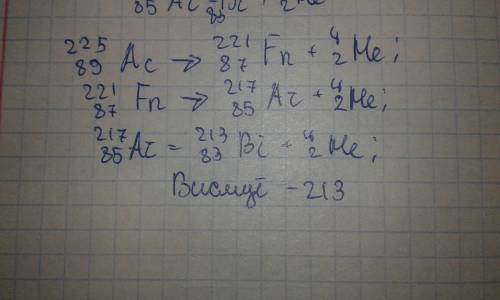 ²²⁵₈₉Ac → ²²¹₈₇Fr + ⁴₂He;
²²¹₈₇Fr → ²¹⁷₈₅At + ⁴₂He;
²¹⁷₈₅At = ²¹³₈₃Bi + ⁴₂He;
Висмут - 213